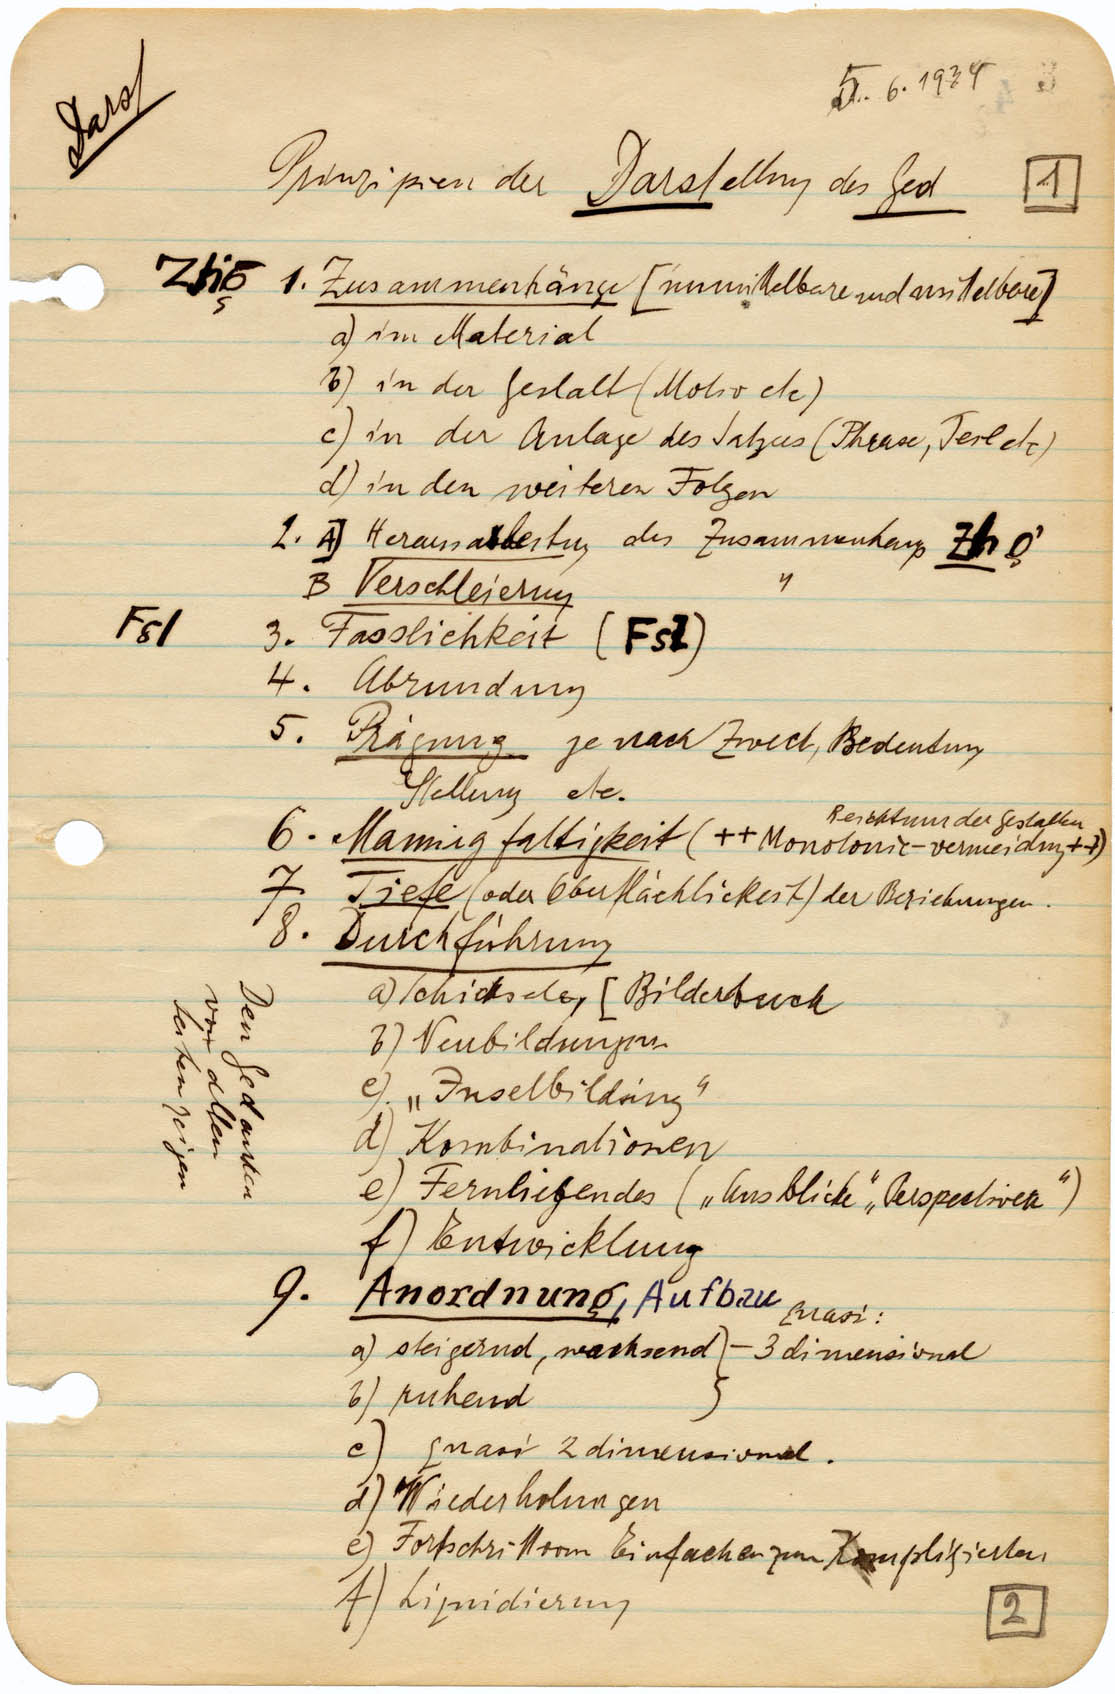 Darst
5. 6. 1934
Prinzipien der Darstellung des Ged
1
Zhg 1. Zusammenhänge [unmittelbare und mittelbare]
a) im Material
b) in der Gestalt (Motiv etc)
c) in der Anlage des Satzes (Phrase, Teil etc)
d) in den weiteren Folgen
2. A) Herausarbeitung des Zusammenhangs Zhg
B Verschleierung "
Fsl 3. Fasslichkeit (Fsl)
4. Abrundung
5. Prägung je nach Zweck, Bedeutung
Stellung etc.
Reichtum der Gestalten
6. Mannigfaltigkeit (++ Monotonie-vermeidung ++)
7 Tiefe (oder Oberflächlichkeit) der Beziehungen.
8. Durchführung
a) Schicksale, [Bilderbuch
b) Neubildungen
c) „Inselbildung"
d) Kombinationen
e) Fernliegendes („Ausblicke" „Perspectiven")
f) Entwicklung
Den Gedanken
von allen
Seiten zeigen
9. Anordnung, Aufbau
quasi:
a) steigernd, wachsend } – 3 dimensional
b) ruhend
c) quasi 2 dimensional.
d) Wiederholungen
e) Fortschritt vom Einfachen zum Komplizierten
f) Liquidierung
2